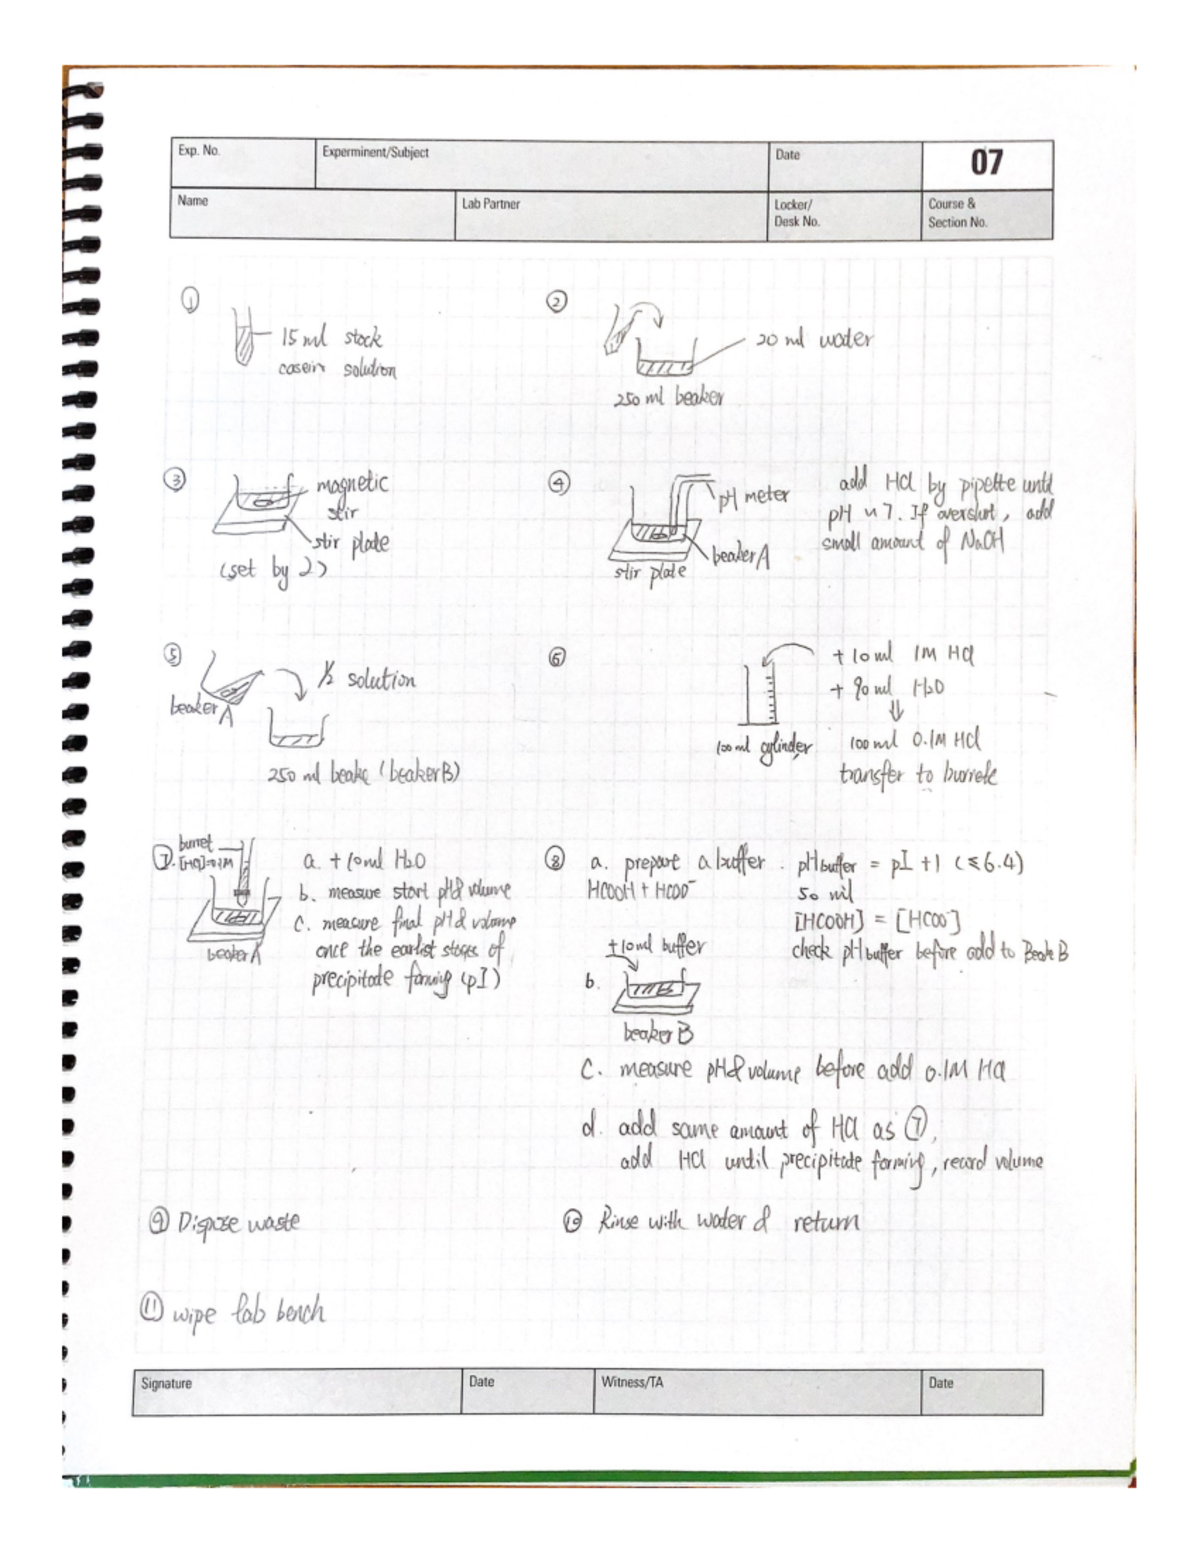 Exp. No.
Experminent/Subject
Date
07
Name
Lab Partner
Locker/
Desk No.
Course &
Section No.
①
15 ml stock
casein solution
②
20 ml water
250 ml beaker
③
magnetic
stir
stir plate
(set by 2)
④
pH meter
beaker A
stir plate
add HCl by pipette until
pH ~ 7. If overshot, add
small amount of NaOH
⑤
beaker A
1/2 solution
250 ml beake (beaker B)
⑥
+ 10 ml 1M HCl
+ 90 ml H2O
⇓
100 ml cylinder
100 ml 0.1M HCl
transfer to burrete
⑦.
burret
[HCl]=0.1M
beaker A
a. + 10 ml H2O
b. measure start pH & volume
c. measure final pH & volume
once the earlist stages of
precipitate forming (pI)
⑧
a. prepare a buffer.
HCOOH + HCOO⁻
pH buffer = pI + 1 (≤6.4)
50 ml
[HCOOH] = [HCOO⁻]
check pH buffer before add to Beake B
+10ml buffer
b.
beaker B
C. measure pH & volume before add 0.1M HCl
d. add same amount of HCl as ⑦,
add HCl until precipitate forming, record volume
⑨ Dispose waste
⑩ Rinse with water & return
⑪ wipe lab bench
Signature
Date
Witness/TA
Date